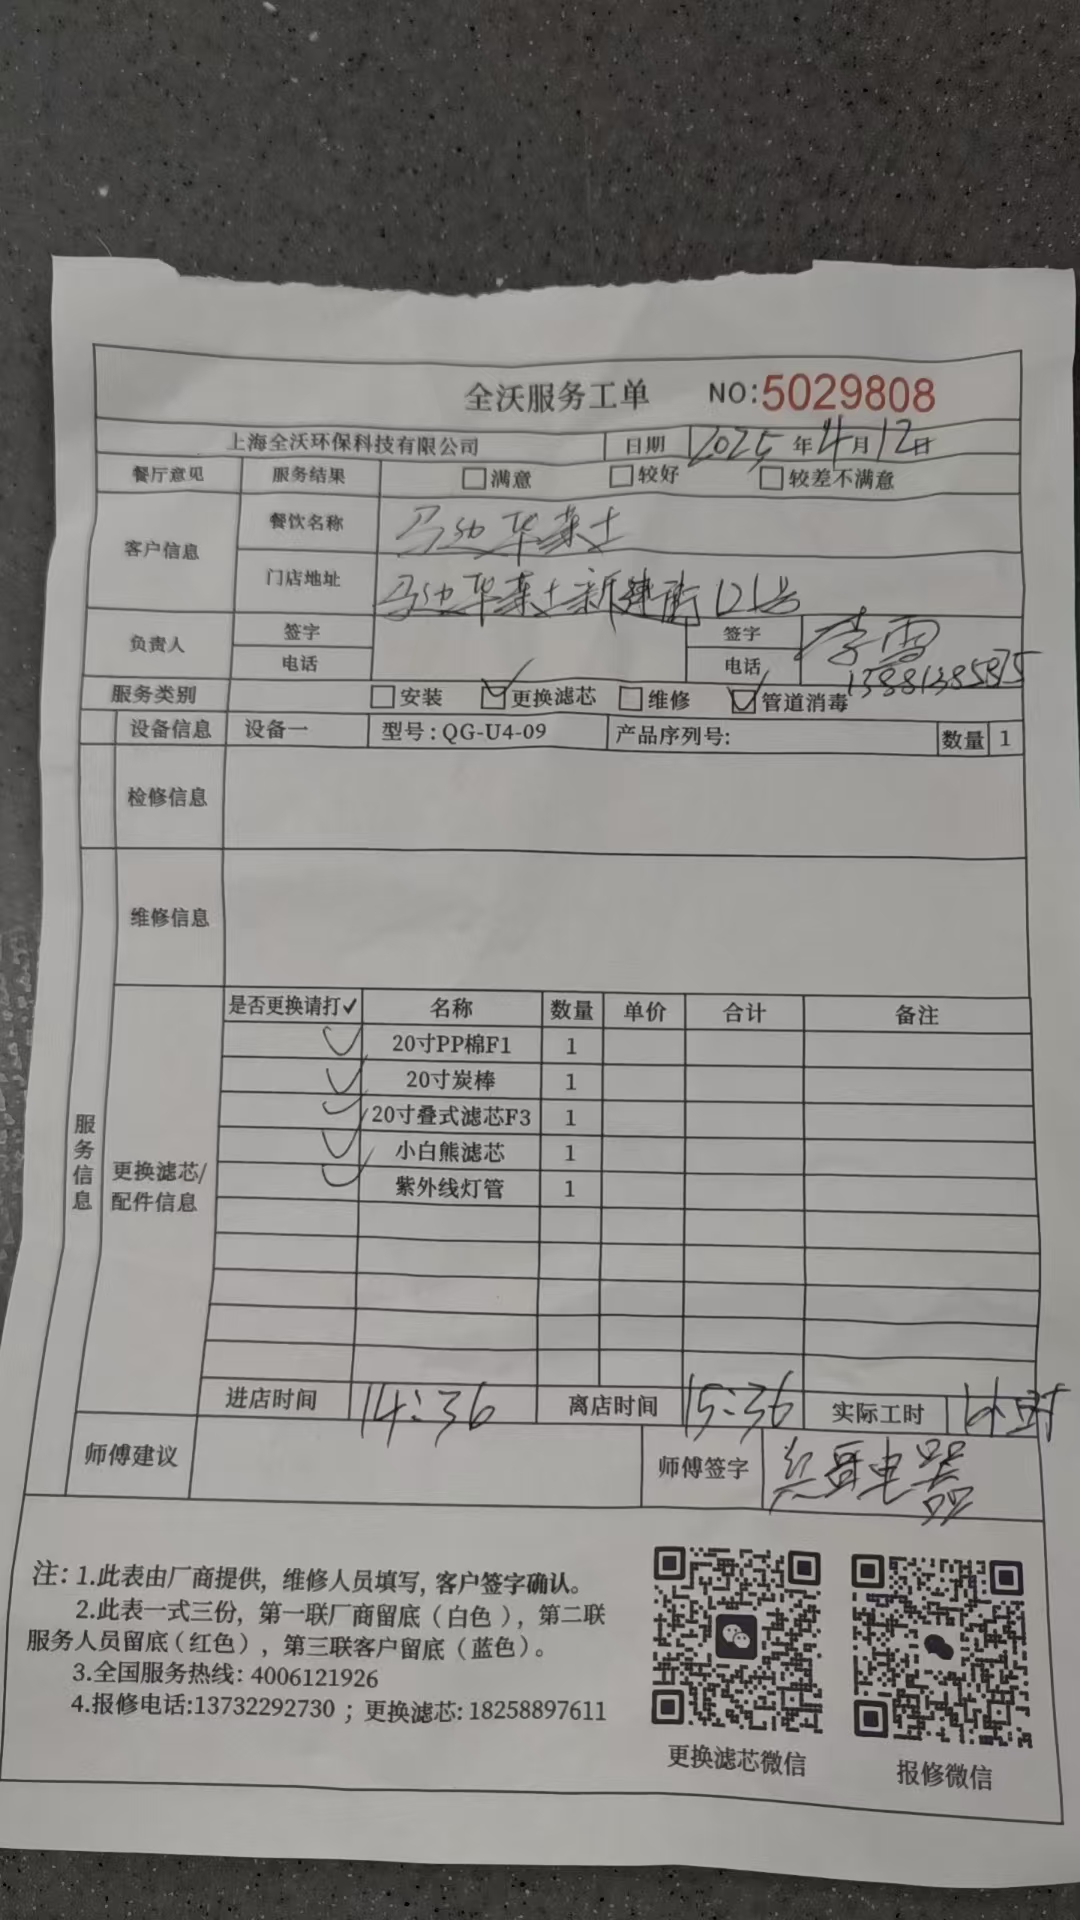 全沃服务工单 NO:5029808
上海全沃环保科技有限公司 日期 2025年4月12日
餐厅意见 服务结果 满意 较好 较差不满意
客户信息 餐饮名称 马边华莱士
门店地址 马边华莱士新建街121号
负责人 签字 签字 李雪
电话 电话 13881385875
服务类别 安装 ✓更换滤芯 维修 ✓管道消毒
设备信息 设备一 型号:QG-U4-09 产品序列号: 数量 1
检修信息
维修信息
服务信息
更换滤芯/配件信息
是否更换请打✓ 名称 数量 单价 合计 备注
✓ 20寸PP棉F1 1
✓ 20寸炭棒 1
✓ 20寸叠式滤芯F3 1
✓ 小白熊滤芯 1
✓ 紫外线灯管 1
进店时间 14:36 离店时间 15:36 实际工时 1小时
师傅建议 师傅签字 电器
注:1.此表由厂商提供,维修人员填写,客户签字确认。
2.此表一式三份,第一联厂商留底(白色),第二联
服务人员留底(红色),第三联客户留底(蓝色)。
3.全国服务热线:4006121926
4.报修电话:13732292730;更换滤芯:18258897611
更换滤芯微信 报修微信